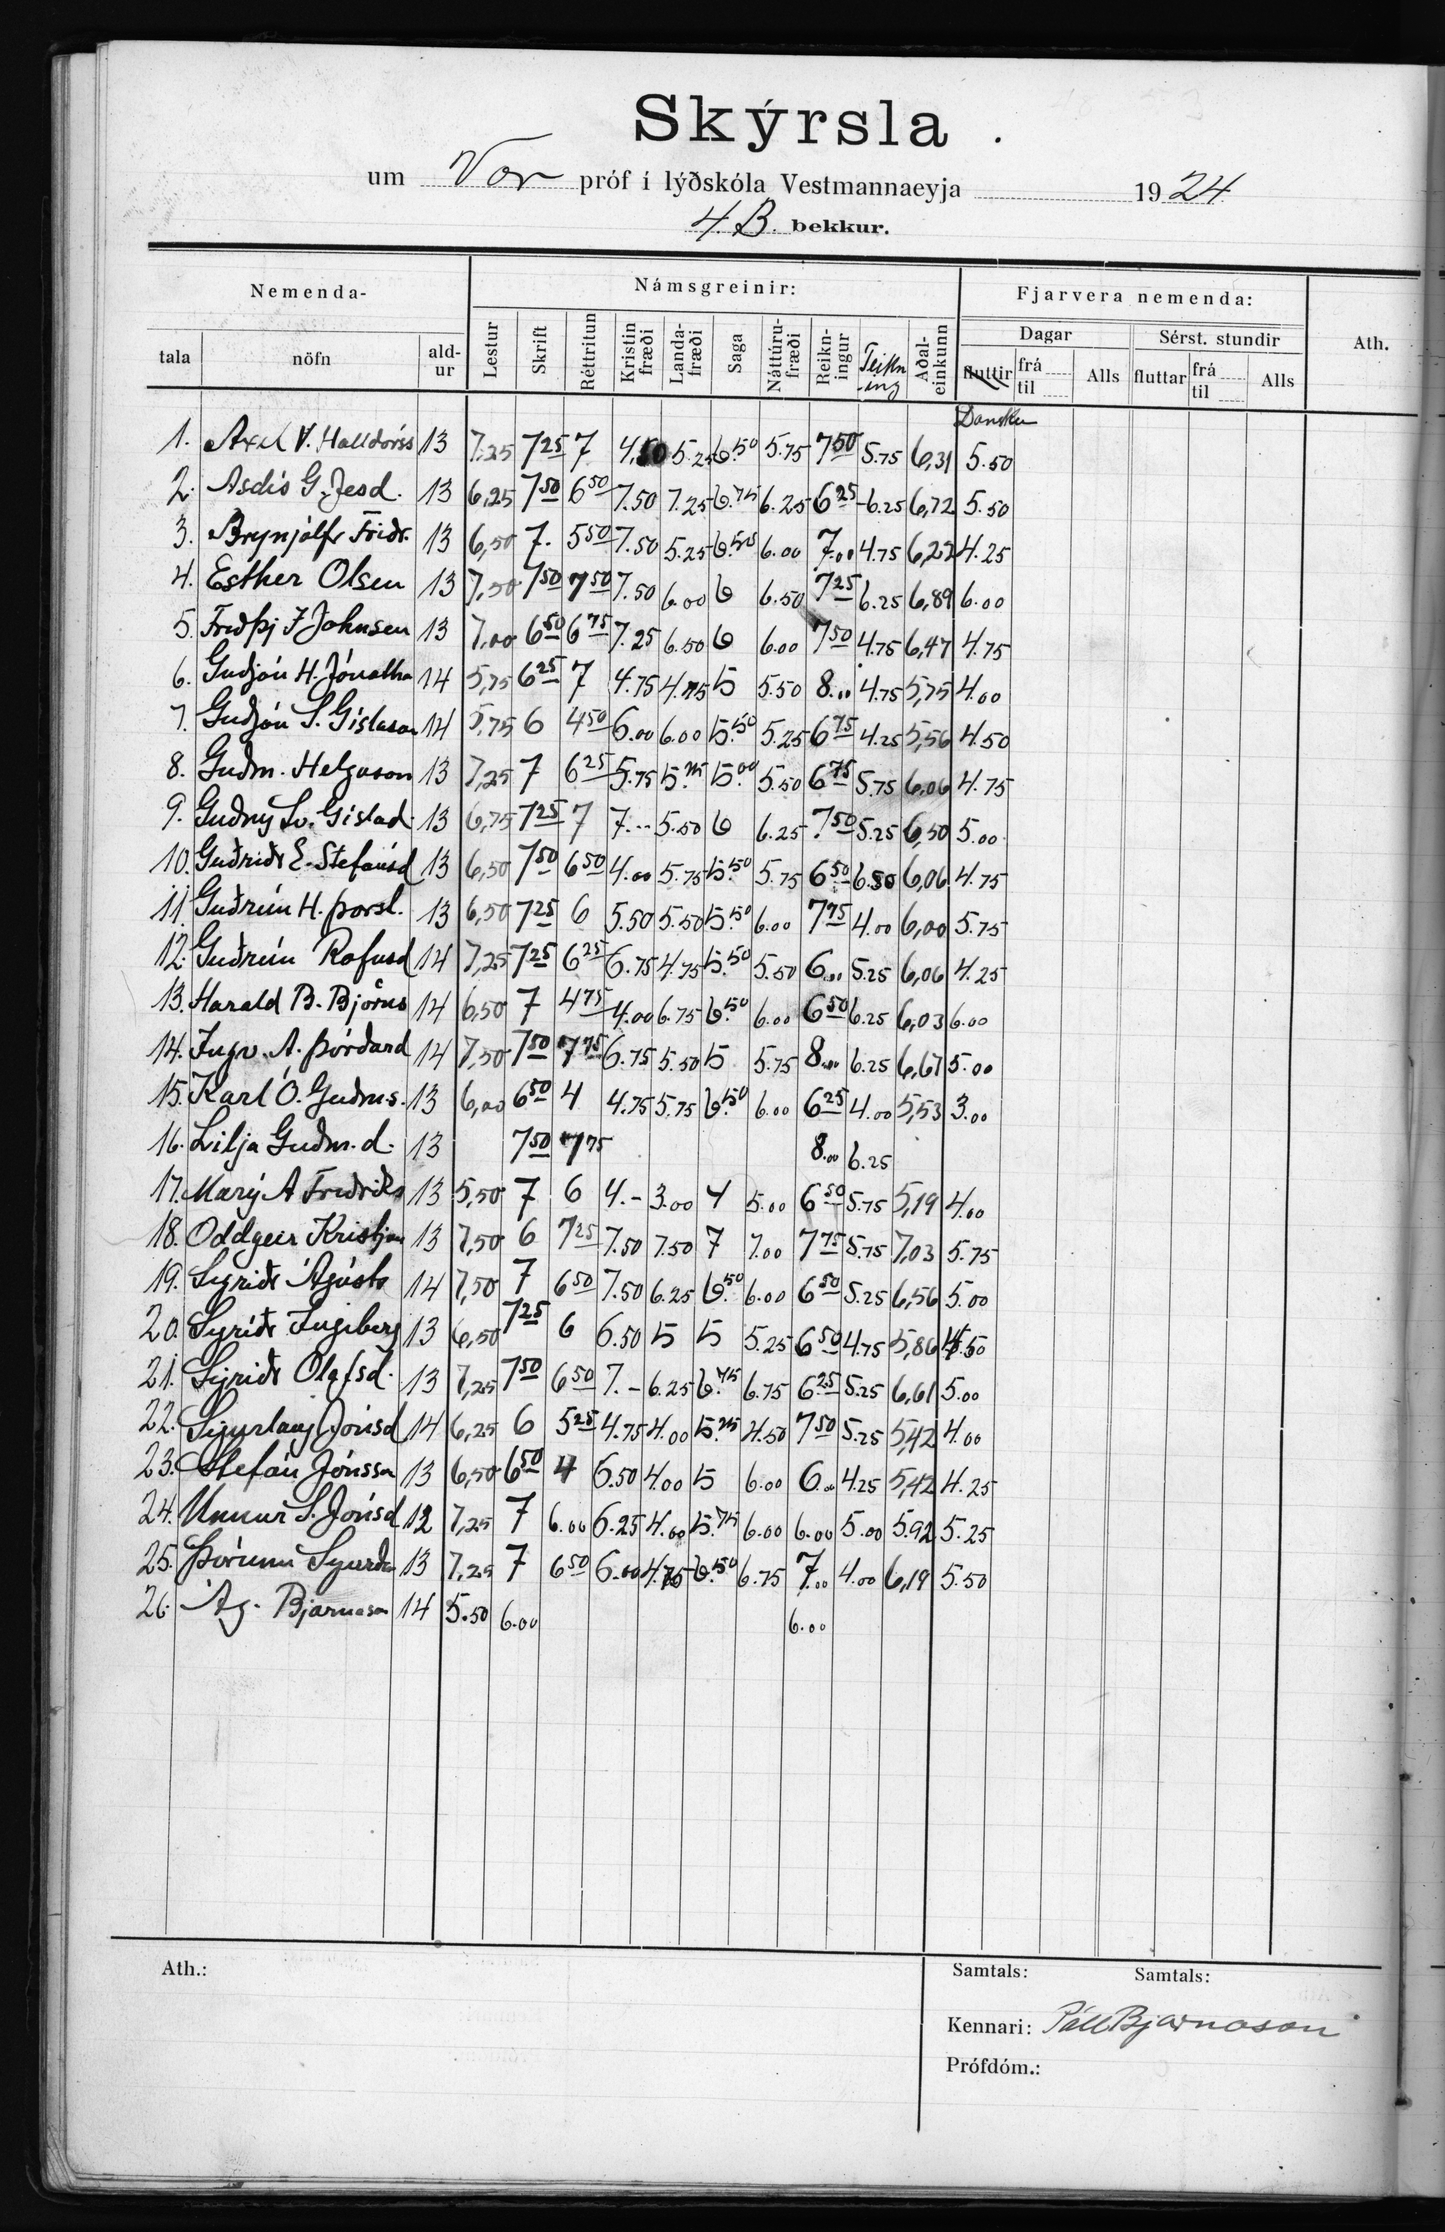 Skýrsla.
um Vor próf í lýðskóla Vestmannaeyja 1924
4. B. bekkur.
Nemenda- Námsgreinir: Fjarvera nemenda: Ath.
tala nöfn ald-ur Lestur Skrift Réttritun Kristinfræði Landa-fræði Saga Náttúru-fræði Reikn-ingur Teikn-ing Aðal-einkunn Dagar Sérst. stundir
fluttir frá til Alls fluttar frá til Alls
Danska
1. Axel V. Halldórss 13 7,25 7 25 7 4,50 5.25 6.50 5.75 7 50 5.75 6,31 5.50
2. Asdís G. Jesd. 13 6,25 7 50 6 50 7.50 7.25 6.75 6.25 6 25 6.25 6,72 5.50
3. Brynjólfr Friðr. 13 6,50 7. 5 50 7.50 5.25 6.50 6.00 7.00 4.75 6,22 4.25
4. Esther Olsen 13 7,50 7 50 7 50 7.50 6.00 6 6.50 7 25 6.25 6,89 6.00
5. Friðþj F Johnsen 13 7,00 6 50 6 75 7.25 6.50 6 6.00 7 50 4.75 6,47 4.75
6. Guðjón H. Jónatha 14 5,75 6 25 7 4.75 4.75 5 5.50 8.00 4.75 5,75 4.00
7. Guðjón S. Gíslason 14 5,75 6 4 50 6.00 6.00 5.50 5.25 6 75 4.25 5,56 4.50
8. Guðm. Helgason 13 7,25 7 6 25 5.75 5.75 5.00 5.50 6 75 5.75 6,06 4.75
9. Guðný Sv. Gíslad. 13 6,75 7 25 7 7... 5.50 6 6.25 7 50 5.25 6,50 5.00
10. Guðriðr E. Stefánsd 13 6,50 7 50 6 50 4.00 5.75 5.50 5.75 6 50 6.50 6,06 4.75
11. Guðrún H. Þorst. 13 6,50 7 25 6 5.50 5.50 5.50 6.00 7 75 4.00 6,00 5.75
12. Guðrún Rafnsd 14 7,25 7 25 6 25 6.75 4.75 5.50 5.50 6.00 5.25 6,06 4.25
13. Harald B. Björns 14 6,50 7 4 75 4.00 6.75 6.50 6.00 6 50 6.25 6,03 6.00
14. Ingv. A. Þórðard 14 7,50 7 50 7 75 6.75 5.50 5 5.75 8.00 6.25 6,67 5.00
15. Karl Ó. Guðms. 13 6,00 6 50 4 4.75 5.75 6.50 6.00 6 25 4.00 5,53 3.00
16. Lilja Guðm.d. 13 7 50 7 75 8.00 6.25
17. Marý A Friðriks 13 5,50 7 6 4.- 3.00 4 5.00 6 50 5.75 5,19 4.00
18. Oddgeir Kristján 13 7,50 6 7 25 7.50 7.50 7 7.00 7 75 5.75 7,03 5.75
19. Sigriðr Ágústs 14 7,50 7 6 50 7.50 6.25 6.50 6.00 6 50 5.25 6,56 5.00
20. Sigríðr Ingiberg 13 6,50 7 25 6 6.50 5 5 5.25 6 50 4.75 5,86 4.50
21. Sigriðr Olafsd. 13 7,25 7 50 6 50 7.- 6.25 6.75 6.75 6.25 5.25 6,61 5.00
22. Sigurlaug Jónsd 14 6,25 6 5 25 4.75 4.00 5.75 4.50 7 50 5.25 5,42 4.00
23. Stefán Jónsson 13 6,50 6 50 4 6.50 4.00 5 6.00 6.00 4.25 5,42 4.25
24. Unnur S. Jónsd 12 7,25 7 6.00 6.25 4.00 5.75 6.00 6.00 5.00 5.92 5.25
25. Þórunn Sigurða 13 7,25 7 6 50 6.00 4.75 6.50 6.75 7.00 4.00 6,19 5.50
26. Ag. Bjarnason 14 5.50 6.00 6.00
Ath.: Samtals: Samtals:
Kennari: Páll Bjarnason
Prófdóm.: